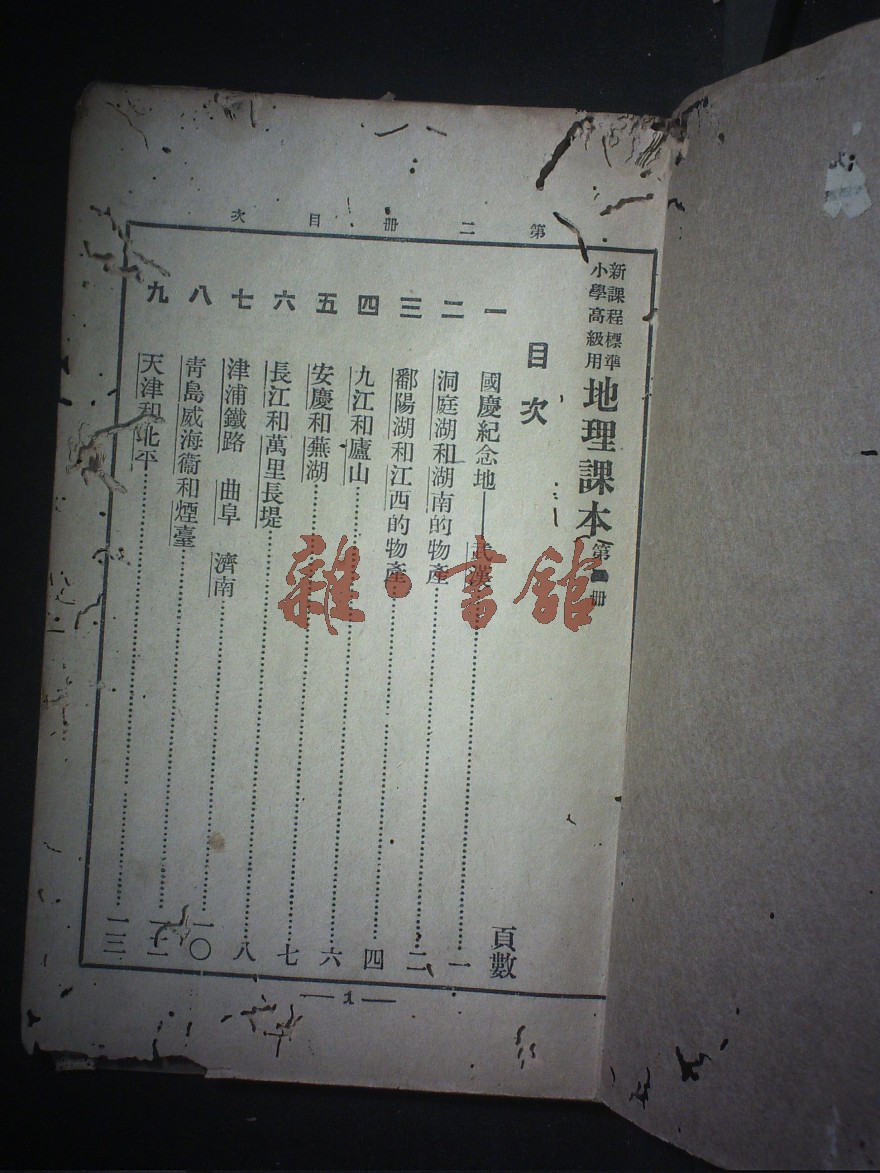 第二冊目次
新課程標準
小學高級用
地理課本 第二冊
目次
頁數
一 國慶紀念地——武漢……一
二 洞庭湖和湖南的物產……二
三 鄱陽湖和江西的物產……四
四 九江和廬山……六
五 安慶和蕪湖……七
六 長江和萬里長堤……八
七 津浦鐵路 曲阜 濟南……一〇
八 青島威海衞和煙臺……一二
九 天津和北平……一三
— 1 —
雜·書館